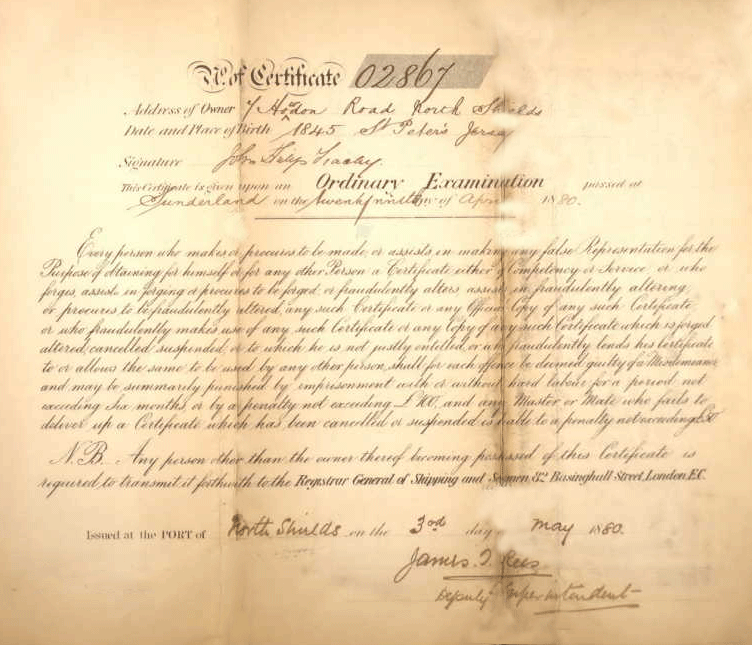 No. of Certificate 02867
Address of Owner 7 Road North Shields
Date and Place of Birth 1845 St Peter's Jersey
Signature John
This Certificate is given upon an Ordinary Examination passed at
Sunderland on the twenty ninth day of April 1880.
Every person who makes or procures to be made or assists in making any false Representation for the
Purpose of obtaining for himself or for any other Person a Certificate either of Competency or Service, or who
forges, assists in forging or procures to be forged, or fraudulently alters assists in fraudulently altering
or procures to be fraudulently altered, any such Certificate or any Official Copy of any such Certificate
or who fraudulently makes use of any such Certificate or any Copy of any such Certificate which is forged
altered, cancelled suspended, or to which he is not justly entitled, or who fraudulently lends his Certificate
to or allows the same to be used by any other person, shall for each offence be deemed guilty of a Misdemeanor
and may be summarily punished by imprisonment with or without hard labour for a period not
exceeding Six months or by a penalty not exceeding £100, and any Master or Mate who fails to
deliver up a Certificate which has been cancelled or suspended is liable to a penalty not exceeding £50
N.B. Any person other than the owner thereof becoming possessed of this Certificate is
required to transmit it forthwith to the Registrar General of Shipping and Seamen 82 Basinghall Street, London E.C.
Issued at the PORT of North Shields on the 3rd day May 1880.
James. Rees
Deputy Superintendent